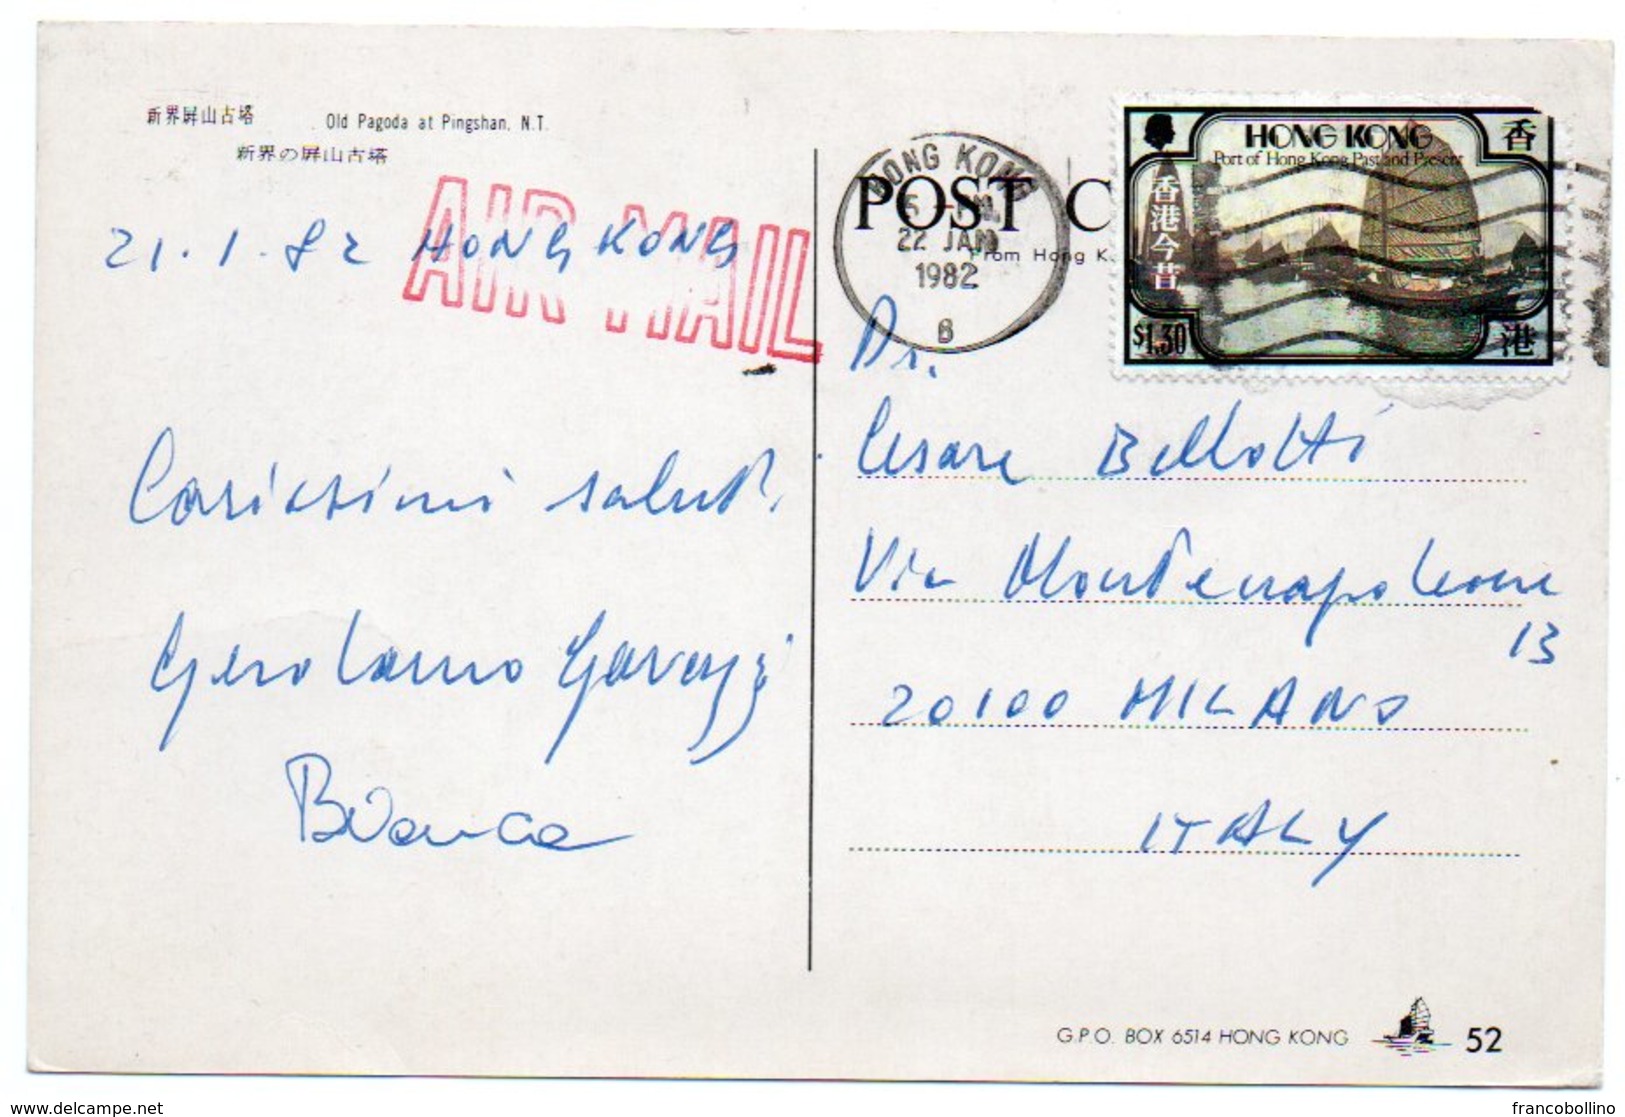 新界屏山古塔 Old Pagoda at Pingshan, N.T.
新界の屏山古塔
AIR MAIL
21.1.82 HONG KONG
Carissimi saluti
Gerolamo Garavaggi
Bianca
HONG KONG
22 JAN
1982
6
POST C
From Hong K
HONG KONG
Port of Hong Kong Past and Present
香港今昔
香
港
$1.30
Dr.
Cesare Bellotti
Via Montenapoleone
13
20100 MILANO
ITALY
G.P.O. BOX 6514 HONG KONG 52
delcampe.net
francobollino